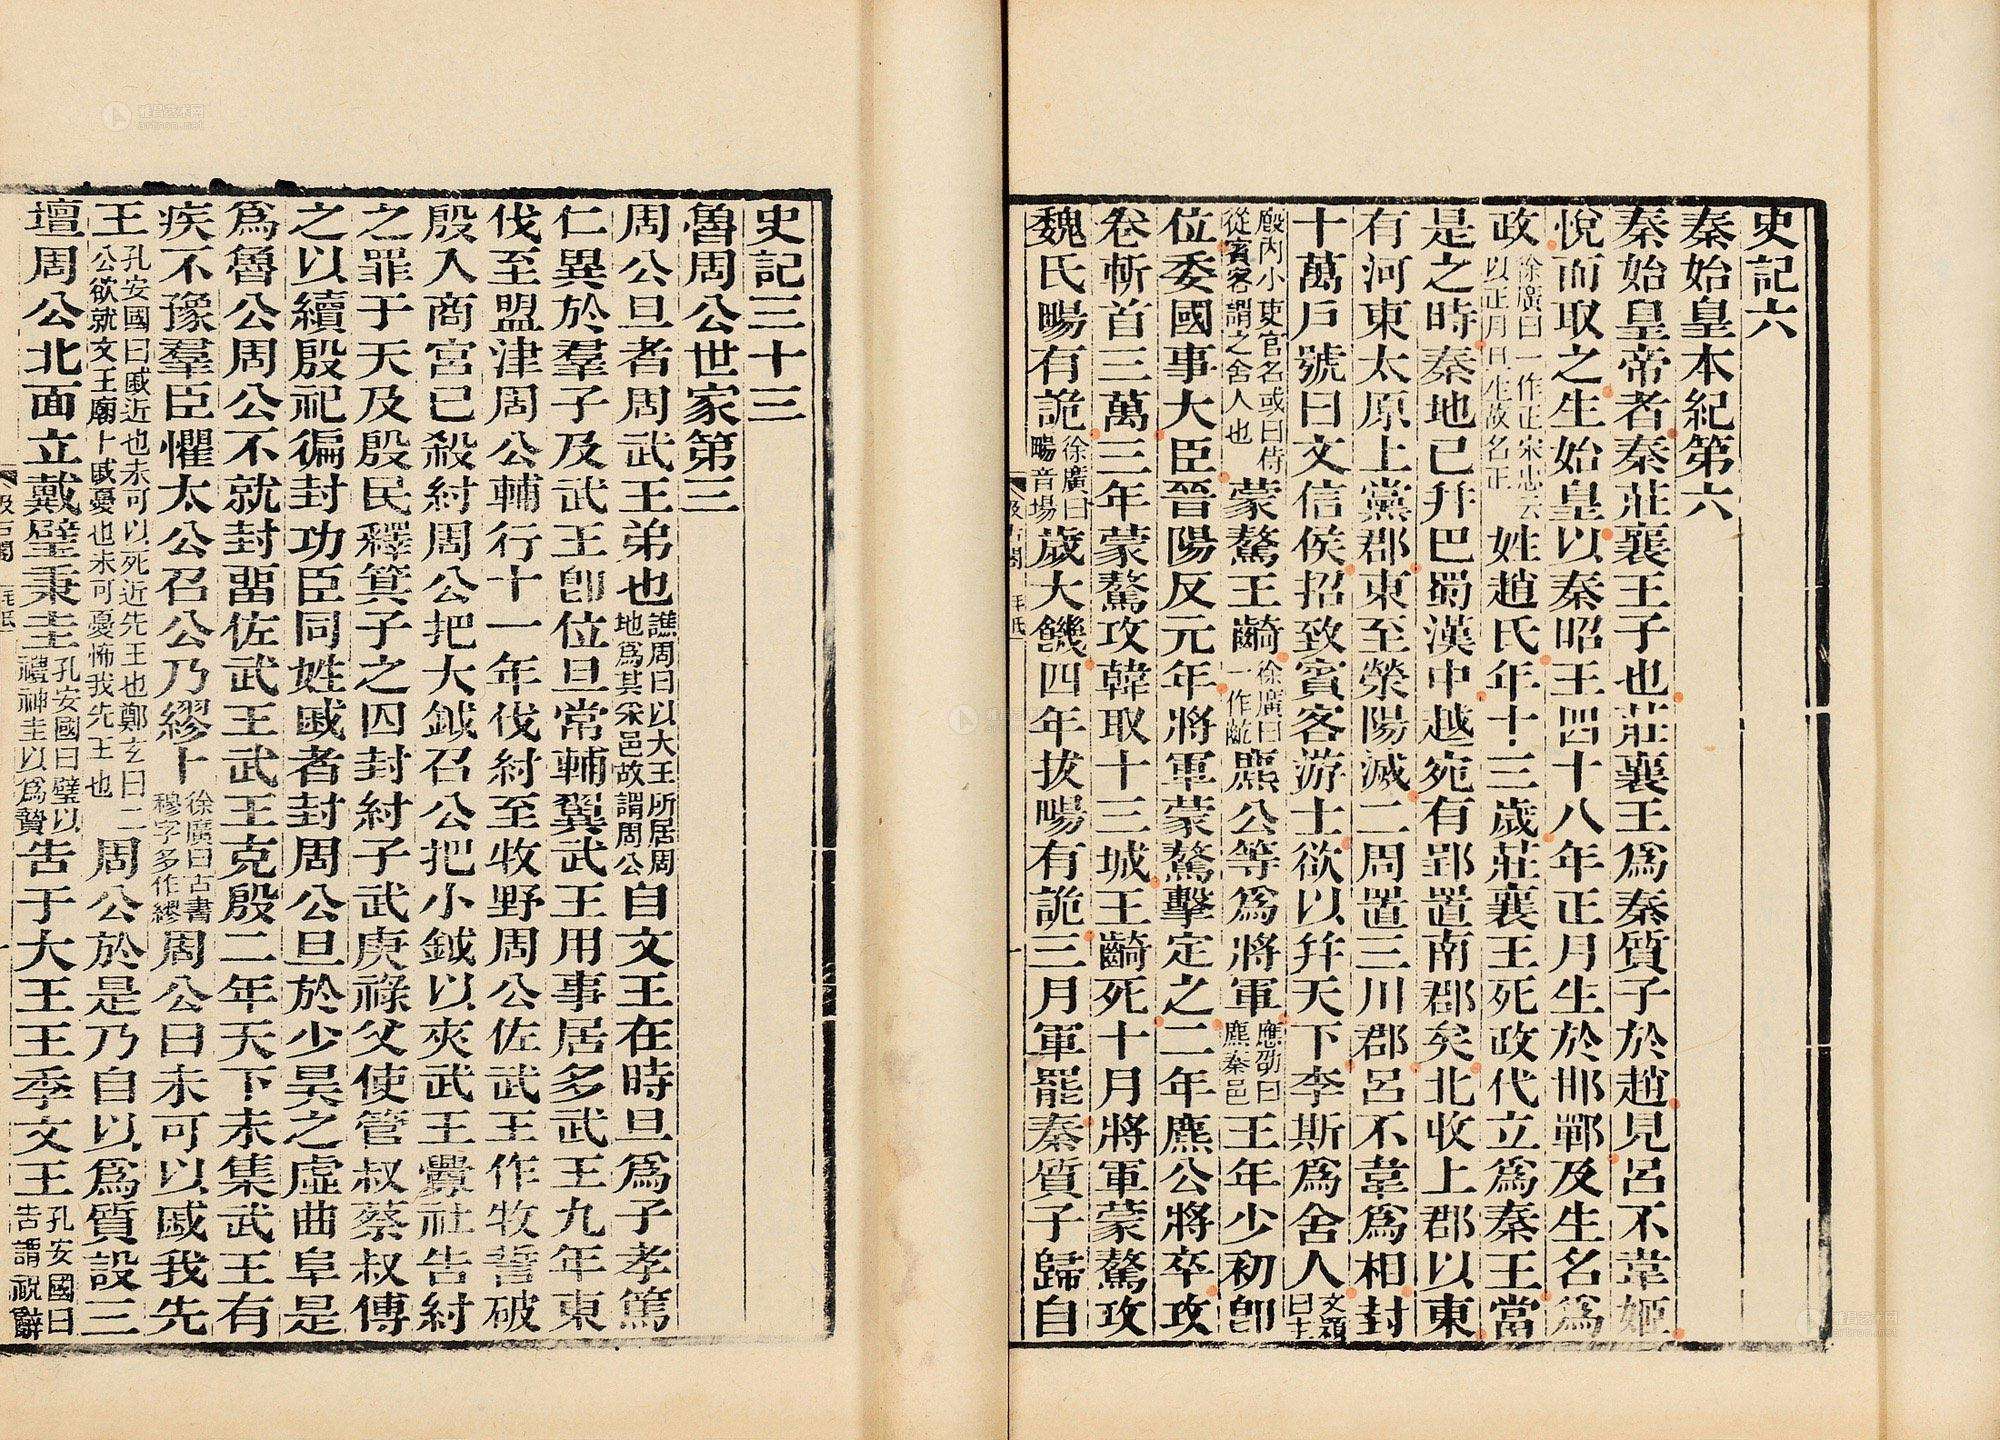 史記六
秦始皇本紀第六
秦始皇帝者秦莊襄王子也莊襄王爲秦質子於趙見呂不韋姬
悅而取之生始皇以秦昭王四十八年正月生於邯鄲及生名爲
政徐廣曰一作正宋忠云以正月旦生故名正姓趙氏年十三歲莊襄王死政代立爲秦王當
是之時秦地已幷巴蜀漢中越宛有郢置南郡矣北收上郡以東
有河東太原上黨郡東至滎陽滅二周置三川郡呂不韋爲相封
十萬戶號曰文信侯招致賓客游士欲以幷天下李斯爲舍人文穎曰主
廄內小吏官名或曰侍從賓客謂之舍人也蒙驁王齮徐廣曰一作齕麃公等爲將軍應劭曰麃秦邑王年少初卽
位委國事大臣晉陽反元年將軍蒙驁擊定之二年麃公將卒攻
卷斬首三萬三年蒙驁攻韓取十三城王齮死十月將軍蒙驁攻
魏氏暘有詭徐廣曰暘音場歲大饑四年拔暘有詭三月軍罷秦質子歸自
史記三十三
魯周公世家第三
周公旦者周武王弟也譙周曰以大王所居周地爲其采邑故謂周公自文王在時旦爲子孝篤
仁異於羣子及武王卽位旦常輔翼武王用事居多武王九年東
伐至盟津周公輔行十一年伐紂至牧野周公佐武王作牧誓破
殷入商宮已殺紂周公把大鉞召公把小鉞以夾武王釁社告紂
之罪于天及殷民釋箕子之囚封紂子武庚祿父使管叔蔡叔傅
之以續殷祀徧封功臣同姓戚者封周公旦於少昊之虛曲阜是
爲魯公周公不就封畱佐武王武王克殷二年天下未集武王有
疾不豫羣臣懼太公召公乃繆卜徐廣曰古書穆字多作繆周公曰未可以戚我先
王孔安國曰戚近也未可以死近先王也鄭玄曰二公欲就文王廟卜戚憂也未可憂怖我先王也周公於是乃自以爲質設三
壇周公北面立戴璧秉圭孔安國曰璧以禮神圭以爲贄告于大王王季文王孔安國曰告謂祝辭